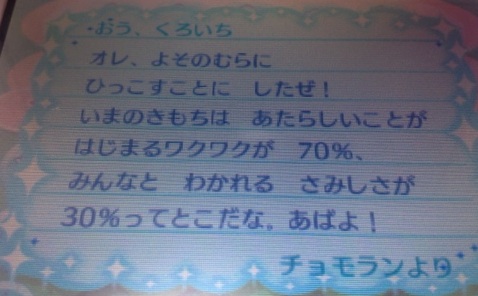 おう、くろいち
オレ、よそのむらに
ひっこすことに したぜ!
いまのきもちは あたらしいことが
はじまるワクワクが 70%、
みんなと わかれる さみしさが
30%ってとこだな。あばよ!
チョモランより